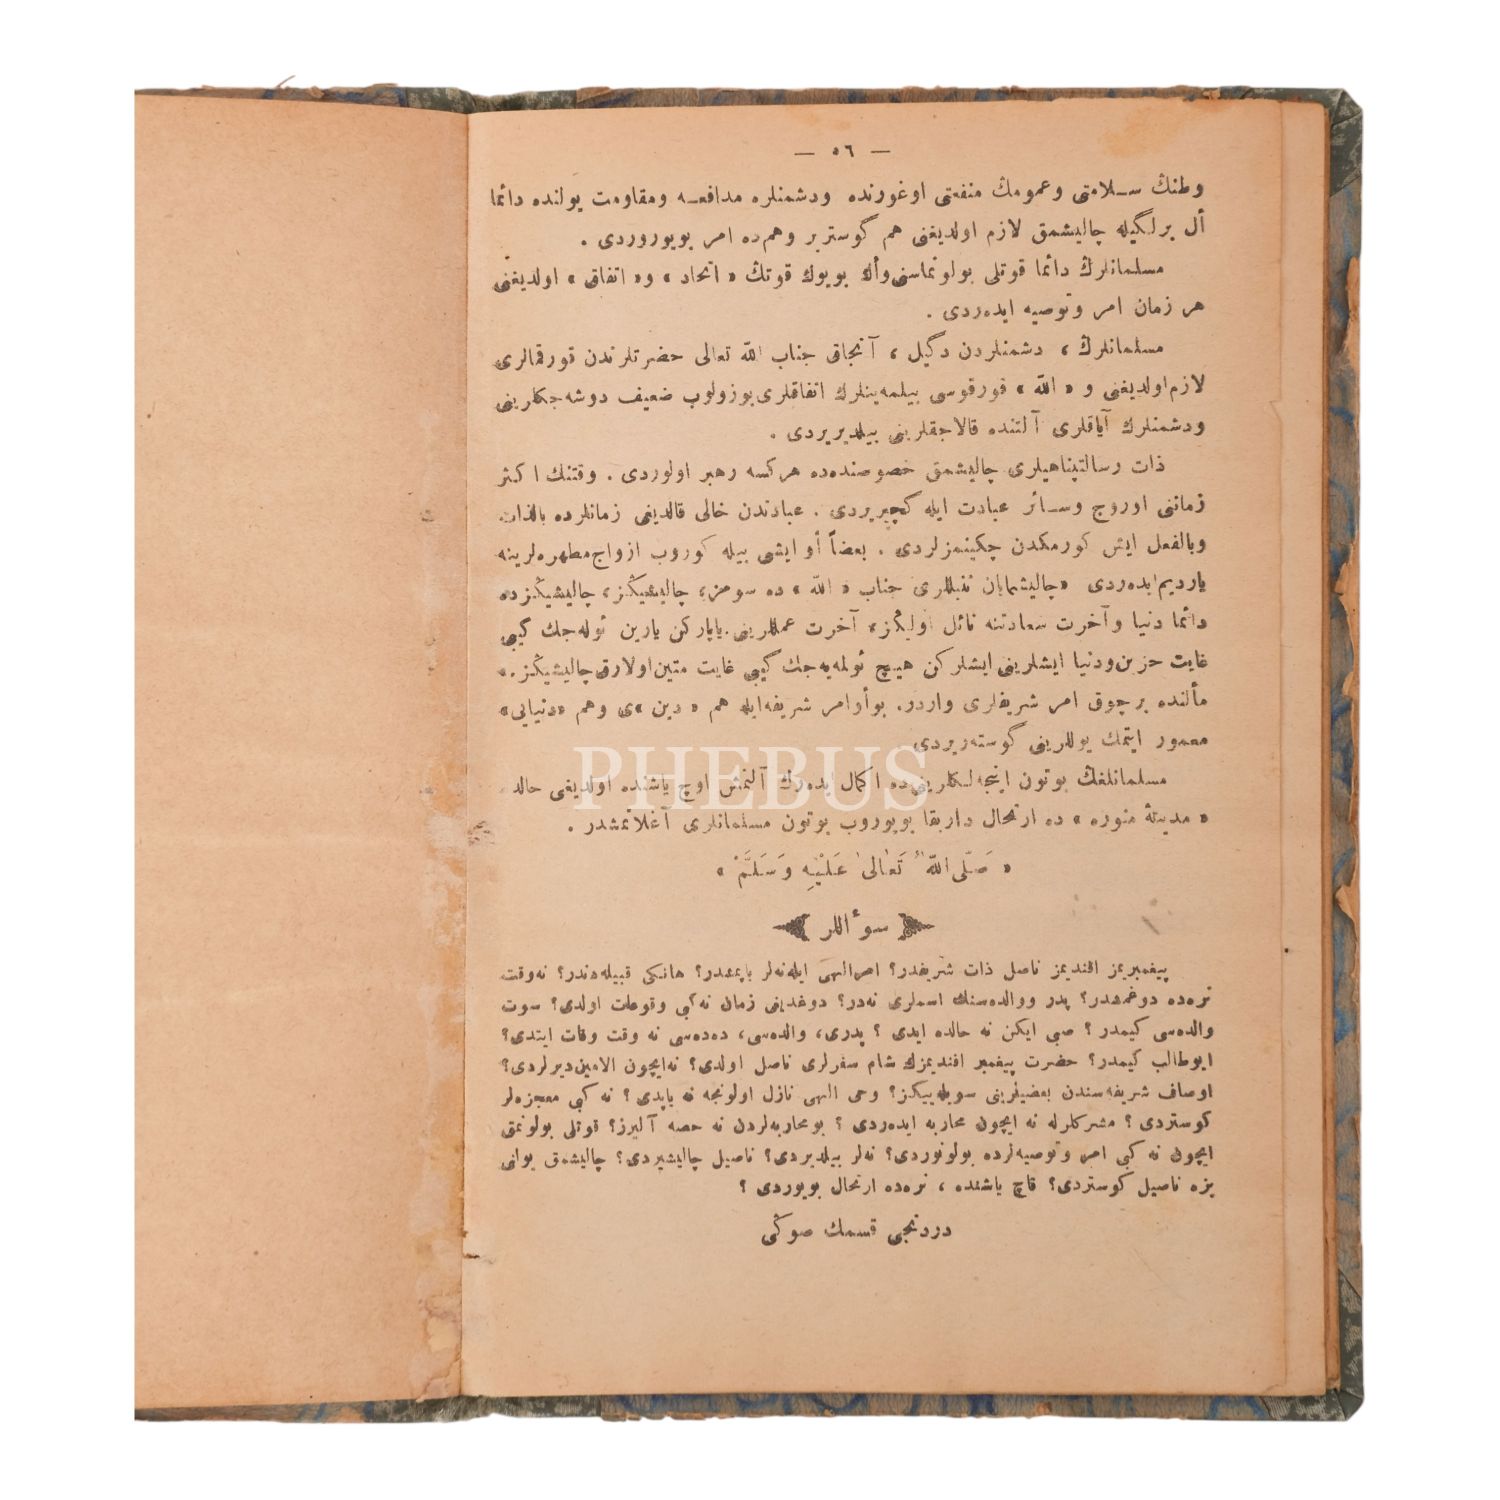 — ٥٦ —
وطنڭ سـلامتی وعمومڭ منفعتی اوغورنده ودشمنلره مدافعـه ومقاومت یولنده دائما
أل برلگیله چالیشمق لازم اولدیغنی هم گوستریر وهم‌ده امر بویوروردی .
مسلمانلرڭ دائما قوتلی بولونماسنی وأڭ بویوك قوتڭ « اتحاد » و« اتفاق » اولدیغنی
هر زمان امر وتوصیه ایده‌ردی .
مسلمانلرڭ ، دشمنلردن دگیل ، آنجاق جناب الله تعالی حضرتلرندن قورقمالری
لازم اولدیغنی و « الله » قورقوسی بیلمه‌ینلرك اتفاقلری بوزولوب ضعیف دوشه‌جکلرینی
ودشمنلرك آیاقلری آلتنده قالاجقلرینی بیلدیریردی .
ذات رسالتپناهیلری چالیشمق خصوصنده‌ده هرکسه رهبر اولوردی . وقتنك اکثر
زمانی اوروج وسـائر عبادت ایله کچیریردی . عبادتدن خالی قالدیغی زمانلرده بالذات
وبالفعل ایش کورمکدن چکینمزلردی . بعضاً أو ایشی بیله کوروب ازواج مطهره‌لرینه
یاردیم ایده‌ردی «چالیشمایان تنبللری جناب « الله » ده سومز؛ چالیشیڭز، چالیشیڭزده
دائما دنیا وآخرت سعادتنه نائل اولیڭز» آخرت عمللرینی یاپارکن یارین ئوله‌جك گیبی
غایت حزین ودنیا ایشلرینی ایشلرکن هیچ ئولمه‌یه‌جك گیبی غایت متین اولارق چالیشیڭز.»
مألنده بر چوق امر شریفلری واردر. بو أوامر شریفه ایله هم « دین »ی وهم «دنیایی»
معمور ایتمك یوللرینی گوسته‌ریردی
مسلمانلغڭ بوتون اینجه‌لکلرینی‌ده اکمال ایده‌رك آلتمش اوچ یاشنده اولدیغی حالده
« مدینۀ منوره » ده ارتحال داربقا بویوروب بوتون مسلمانلری آغلاتمشدر .
« صَلَّی اللّٰهُ تَعَالیٰ عَلَيْهِ وَسَلَّمْ »
سؤاللر
پیغمبریمز افندیمز ناصل ذات شریفدر؟ امر الهی ایله نه‌لر یاپمشدر؟ هانکی قبیله‌دندر؟ نه‌وقت
نره‌ده دوغمشدر؟ پدر ووالده‌سنك اسملری نه‌در؟ دوغدیغی زمان نه‌کبی وقوعات اولدی؟ سوت
والده‌سی کیمدر ؟ صبی ایکن نه حالده ایدی ؟ پدری، والده‌سی، دده‌سی نه وقت وفات ایتدی؟
ابوطالب کیمدر؟ حضرت پیغمبر افندیمزك شام سفرلری ناصل اولدی؟ نه‌ایچون الامین دیرلردی؟
اوصاف شریفه‌سندن بعضیلرینی سویله‌ییکز؟ وحی الهی نازل اولونجه نه یاپدی ؟ نه کبی معجزه‌لر
کوستردی ؟ مشرکلرله نه ایچون محاربه ایده‌ردی ؟ بومحاربه‌لردن نه حصه آلیرز؟ قوتلی بولونمق
ایچون نه کبی امر وتوصیه‌لرده بولونوردی؟ نه‌لر بیلدیردی؟ ناصیل چالیشیردی؟ چالیشمق یولنی
بزه ناصیل کوستردی؟ قاچ یاشنده ، نره‌ده ارتحال بویوردی ؟
دردنجی قسمك صوڭی
PHEBUS